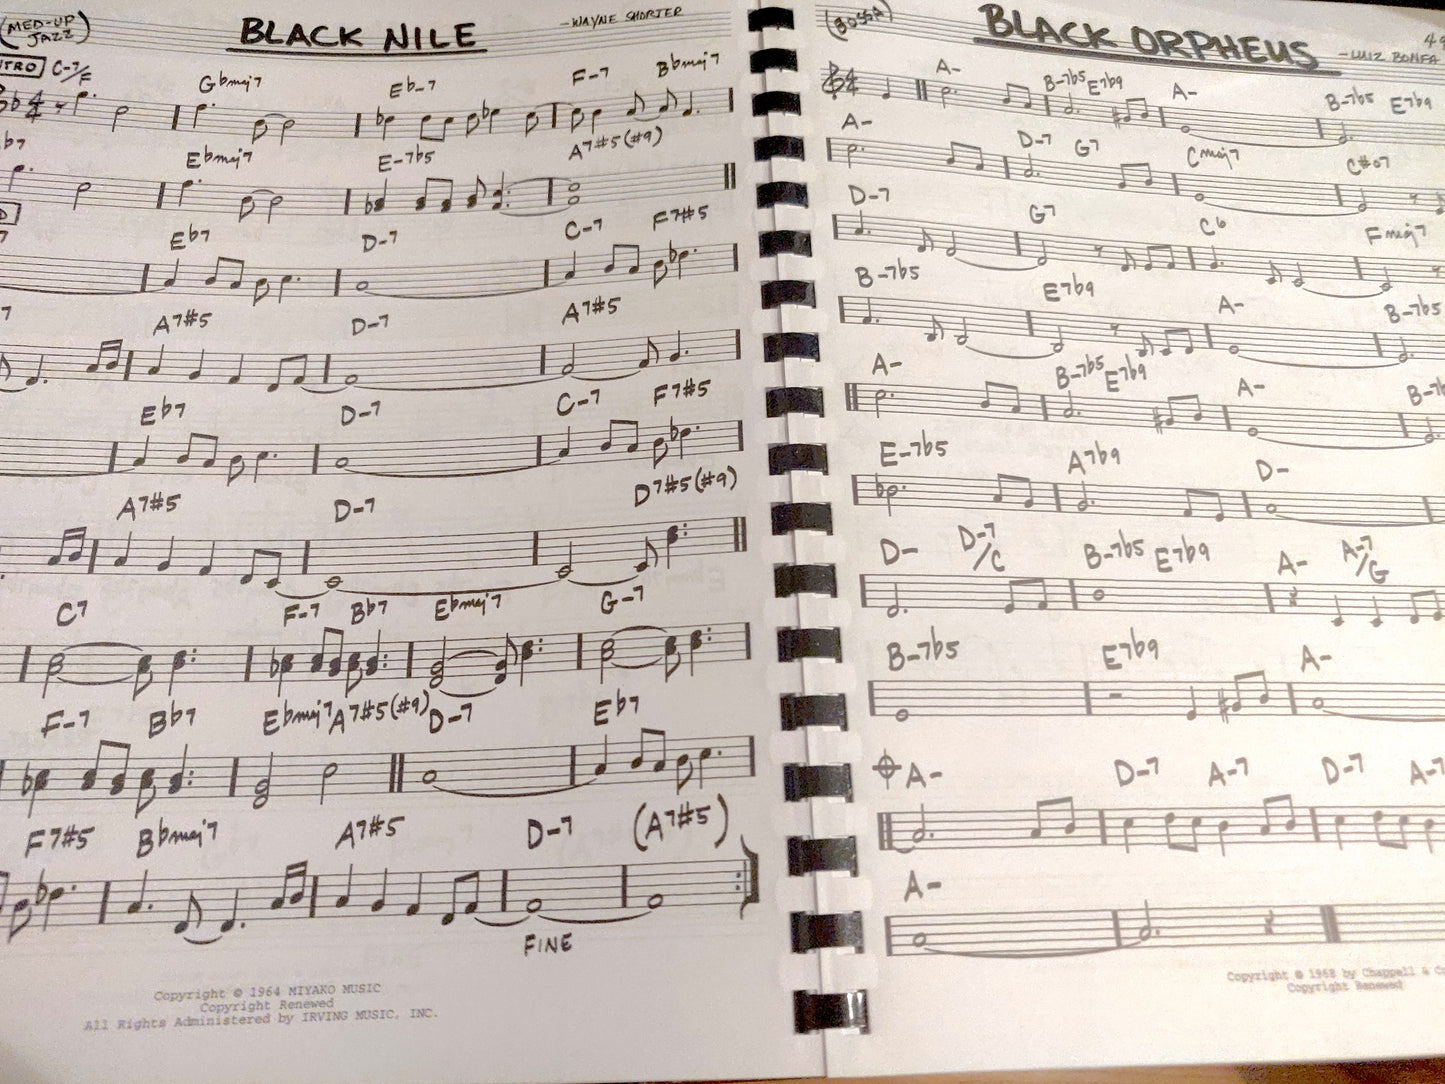 (MED-UP JAZZ)
BLACK NILE
-WAYNE SHORTER
C-7/F G♭maj7 E♭-7 F-7 B♭maj7
E♭maj7 E-7♭5 A7#5(#9)
E♭7 D-7 C-7 F7#5
A7#5 D-7 A7#5
E♭7 D-7 C-7 F7#5
A7#5 D-7 D7#5(#9)
C7 F-7 B♭7 E♭maj7 G-7
F-7 B♭7 E♭maj7 A7#5(#9) D-7 E♭7
F7#5 B♭maj7 A7#5 D-7 (A7#5)
FINE
Copyright © 1964 MIYAKO MUSIC
Copyright Renewed
All Rights Administered by IRVING MUSIC, INC.
(BOSSA)
BLACK ORPHEUS
-LUIZ BONFA
A- B-7♭5 E7♭9 A- B-7♭5 E7♭9
A- D-7 G7 Cmaj7 C#o7
D-7 G7 C6 Fmaj7
B-7♭5 E7♭9 A- B-7♭5
A- B-7♭5 E7♭9 A-
E-7♭5 A7♭9 D-
D- D-7/C B-7♭5 E7♭9 A- A-7/G
B-7♭5 E7♭9 A-
A- D-7 A-7 D-7
A-
Copyright © 1968 by Chappell &
Copyright Renewed